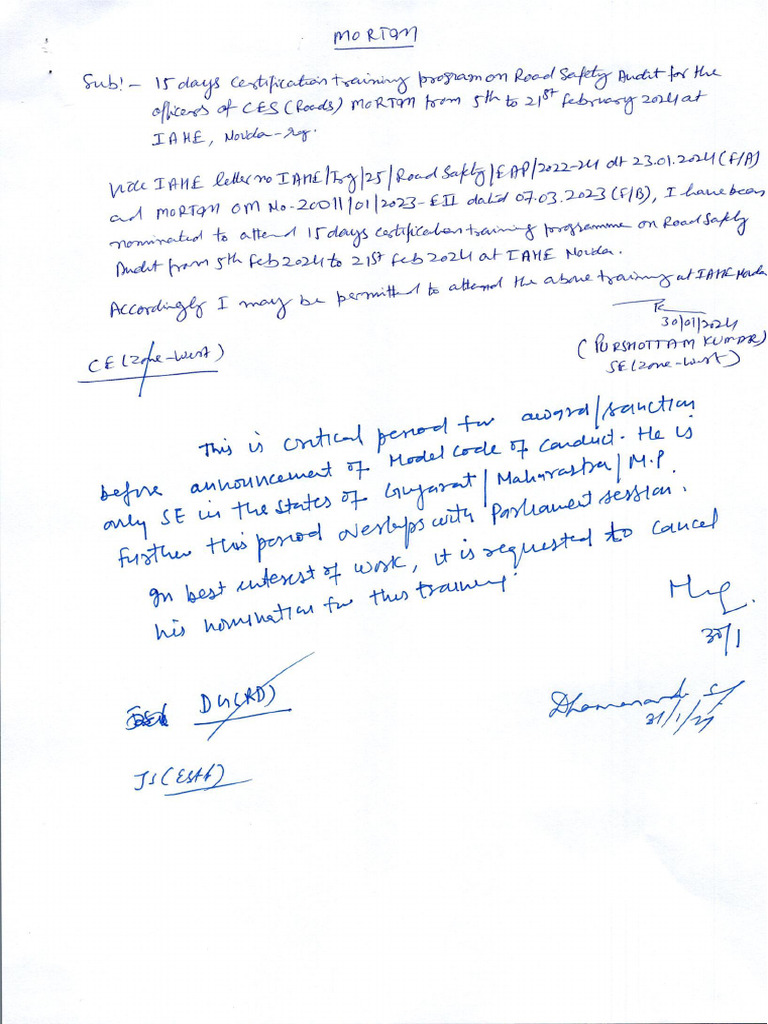 MORT&H
Sub:- 15 days Certification training program on Road Safety Audit for the
officers of CES (Roads) MORT&H from 5th to 21st February 2024 at
IAHE, Noida-reg.
Vide IAHE letter no IAHE/Trg/25/Road Safety/EAP/2022-24 dt 23.01.2024 (F/A)
and MORT&H OM No-20011/01/2023-EII dated 07.03.2023 (F/B), I have been
nominated to attend 15 days certification training programme on Road Safety
Audit from 5th Feb 2024 to 21st Feb 2024 at IAHE Noida.
Accordingly I may be permitted to attend the above training at IAHE Noida
30/01/2024
(PURSHOTTAM KUMAR)
SE (Zone-West)
CE (Zone-West)
This is critical period for award/sanction
before announcement of Model Code of Conduct. He is
only SE in the States of Gujarat/Maharastra/M.P.
Further this period overlaps with Parliament session.
In best interest of work, it is requested to cancel
his nomination for this training.
30/1
DG(RD)
31/1/24
JS(Estt)